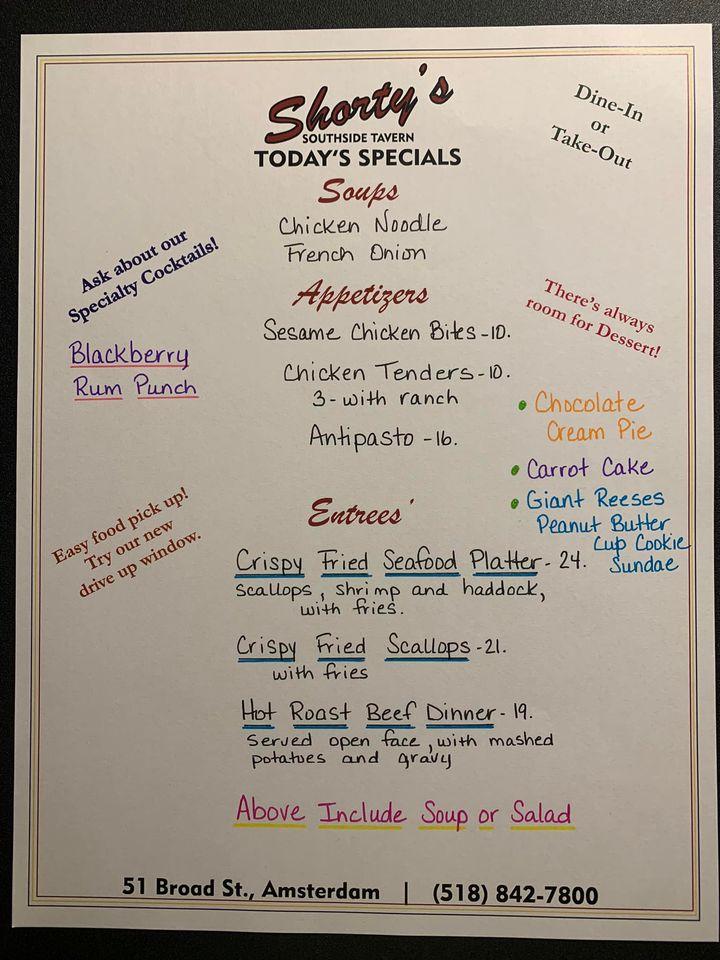 Shorty's
SOUTHSIDE TAVERN
TODAY'S SPECIALS
Dine-In
or
Take-Out
Soups
Chicken Noodle
French Onion
Ask about our
Specialty Cocktails!
Blackberry
Rum Punch
Appetizers
Sesame Chicken Bites - 10.
Chicken Tenders - 10.
3 - with ranch
Antipasto - 16.
There's always
room for Dessert!
• Chocolate
Cream Pie
• Carrot Cake
• Giant Reeses
Peanut Butter
Cup Cookie
Sundae
Easy food pick up!
Try our new
drive up window.
Entrees'
Crispy Fried Seafood Platter - 24.
Scallops, shrimp and haddock,
with fries.
Crispy Fried Scallops - 21.
with fries
Hot Roast Beef Dinner - 19.
Served open face, with mashed
potatoes and gravy
Above Include Soup or Salad
51 Broad St., Amsterdam | (518) 842-7800